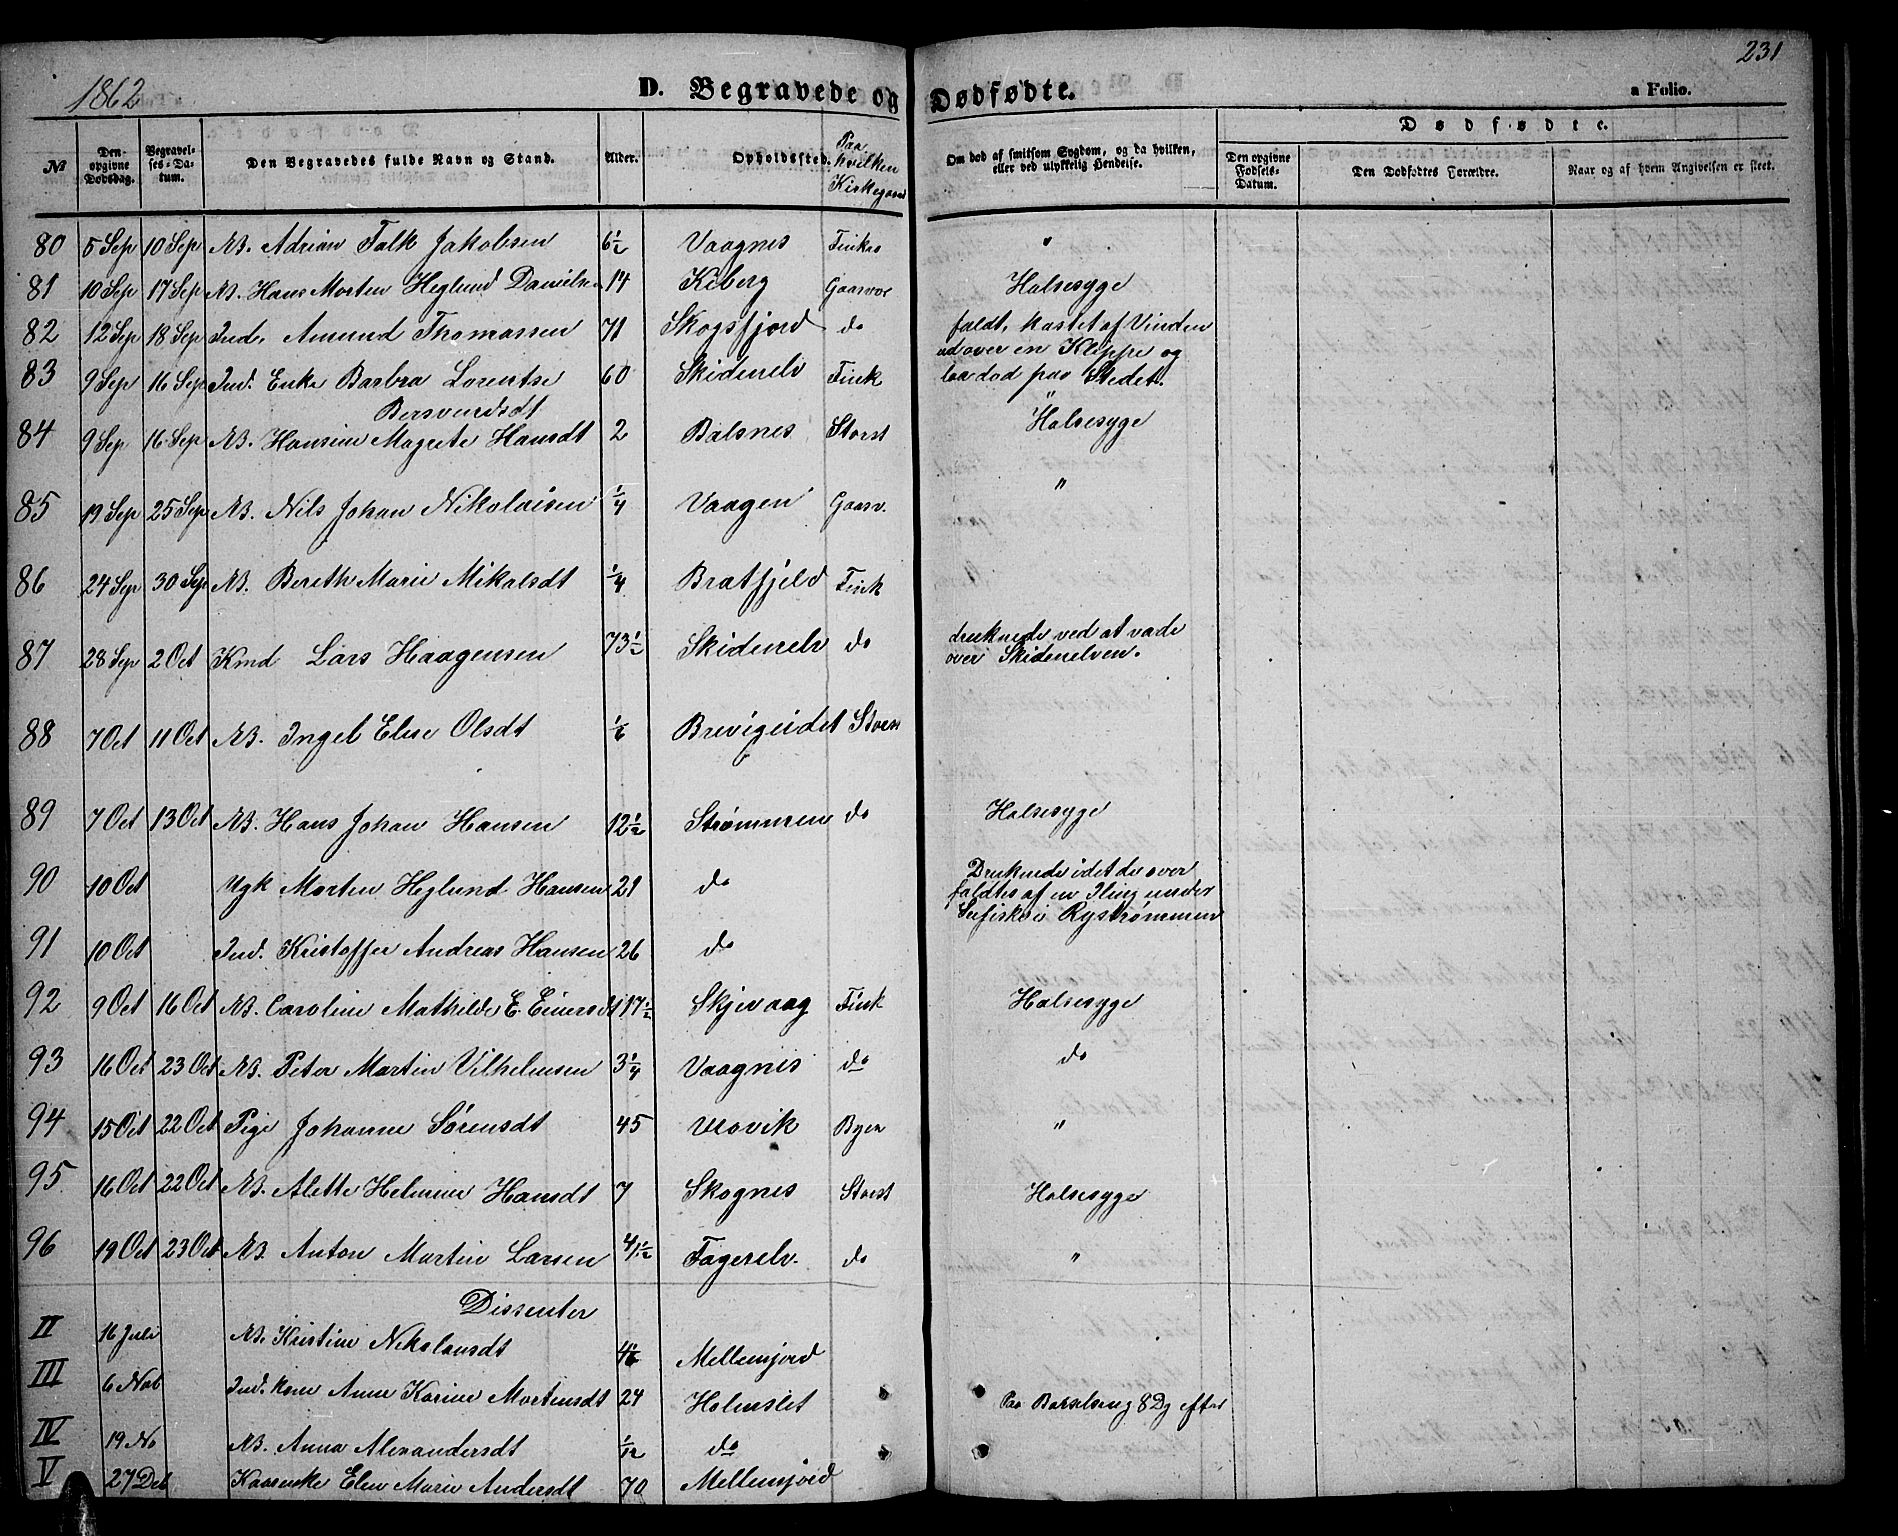 1862 D. Begravede og Dødfødte. a Folio. 231
№ Den opgivne Dødsdag. Begravelses-Datum. Den Begravedes fulde Navn og Stand. Alder. Opholdssted. Paa hvilken Kirkegaard Om død af smitsom Sygdom, og da hvilken, eller ved ulykkelig Hendelse. Dødfødte. Den opgivne Fødsels-Datum. Den Dødfødtes Forældre. Naar og af hvem Angivelsen er skeet.
80 5 Sep 10 Sep NB. Adrian Falk Jakobsen 6½ Vaagnes Finkro "
81 10 Sep 17 Sep NB. Hans Morten Heglund Danielsen 14 Kiberg Gaasvær Halsesyge
82 12 Sep 18 Sep Ind. Amund Thomassen 71 Skogsfjord do faldt, kastet af Vinden
ud over en Klippe og
83 9 Sep 16 Sep Ind. Enke Barbra Lorentse 60 Skidenelv Fink laa død paa Stedet.
Bersvendsdt "
84 9 Sep 16 Sep NB. Hansine Magrete Hansdt 2 Balsnes Storst Halsesyge
85 19 Sep 25 Sep NB. Nils Johan Nikolaisen ¼ Vaagen Gaasv. "
86 24 Sep 30 Sep NB. Bereth Marie Mikalsdt ¼ Bratfjeld Fink
87 28 Sep 2 Oct Kmd Lars Haagensen 73½ Skidenelv do druknede ved at vade
over Skidenelven.
88 7 Oct 11 Oct NB. Ingel Elise Olsdt ⅙ Brevigeidet Storst
89 7 Oct 13 Oct NB. Hans Johan Hansen 12½ Strømmen do Halsesyge
90 10 Oct Ugk Morten Heglund Hansen 21 do Druknede idet de over
faldtes af en Iling under
Seifiske i Rystrømmen
91 10 Oct Ind. Kristoffer Andreas Hansen 26 do
92 9 Oct 16 Oct NB. Caroline Mathilde E. Einersdt 17½ Skjevaag Fink Halsesyge
93 16 Oct 23 Oct NB. Peter Martin Vilhelmsen 3¼ Vaagnes do do
94 15 Oct 22 Oct Pige Johanne Sørensdt 45 Byen "
95 16 Oct 22 Oct NB. Alette Helmine Hansdt 7 Skognes Storst Halsesyge
96 19 Oct 23 Oct NB. Anton Martin Larsen 4/12 Fagerelv. do "
Dissenter
II 16 Juli NB. Kristine Nikolausdt 4⅙ Mellemjord
III 6 Nov Ind. Kone Anne Karine Mortensdt 24 Holmslet Paa Barselseng 8 Dg efter
IV 19 No NB. Anna Alexandersdt 1/12 do
V 27 Deb Kaarenke Elen Marie Andersdt 70 Mellemjord